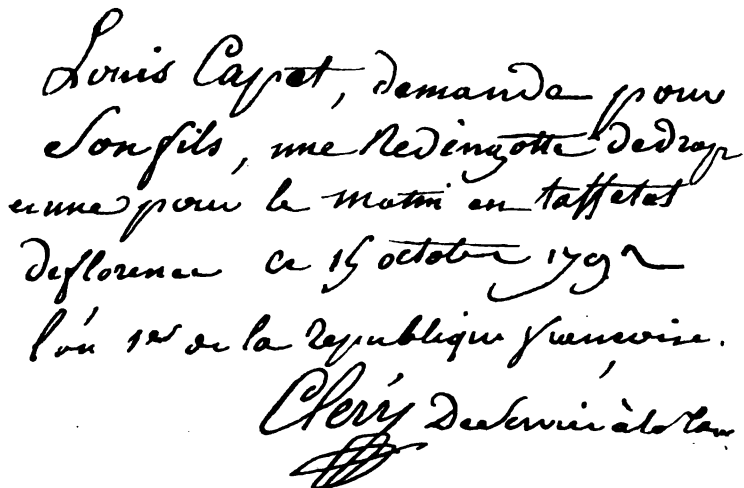 Louis Capet, demande pour
Son fils, une Redingotte de drap
et une pour le matin en taffetas
de florence ce 15 octobre 1792
l'an 1er de la republique francoise.
Clery De Service à la tour